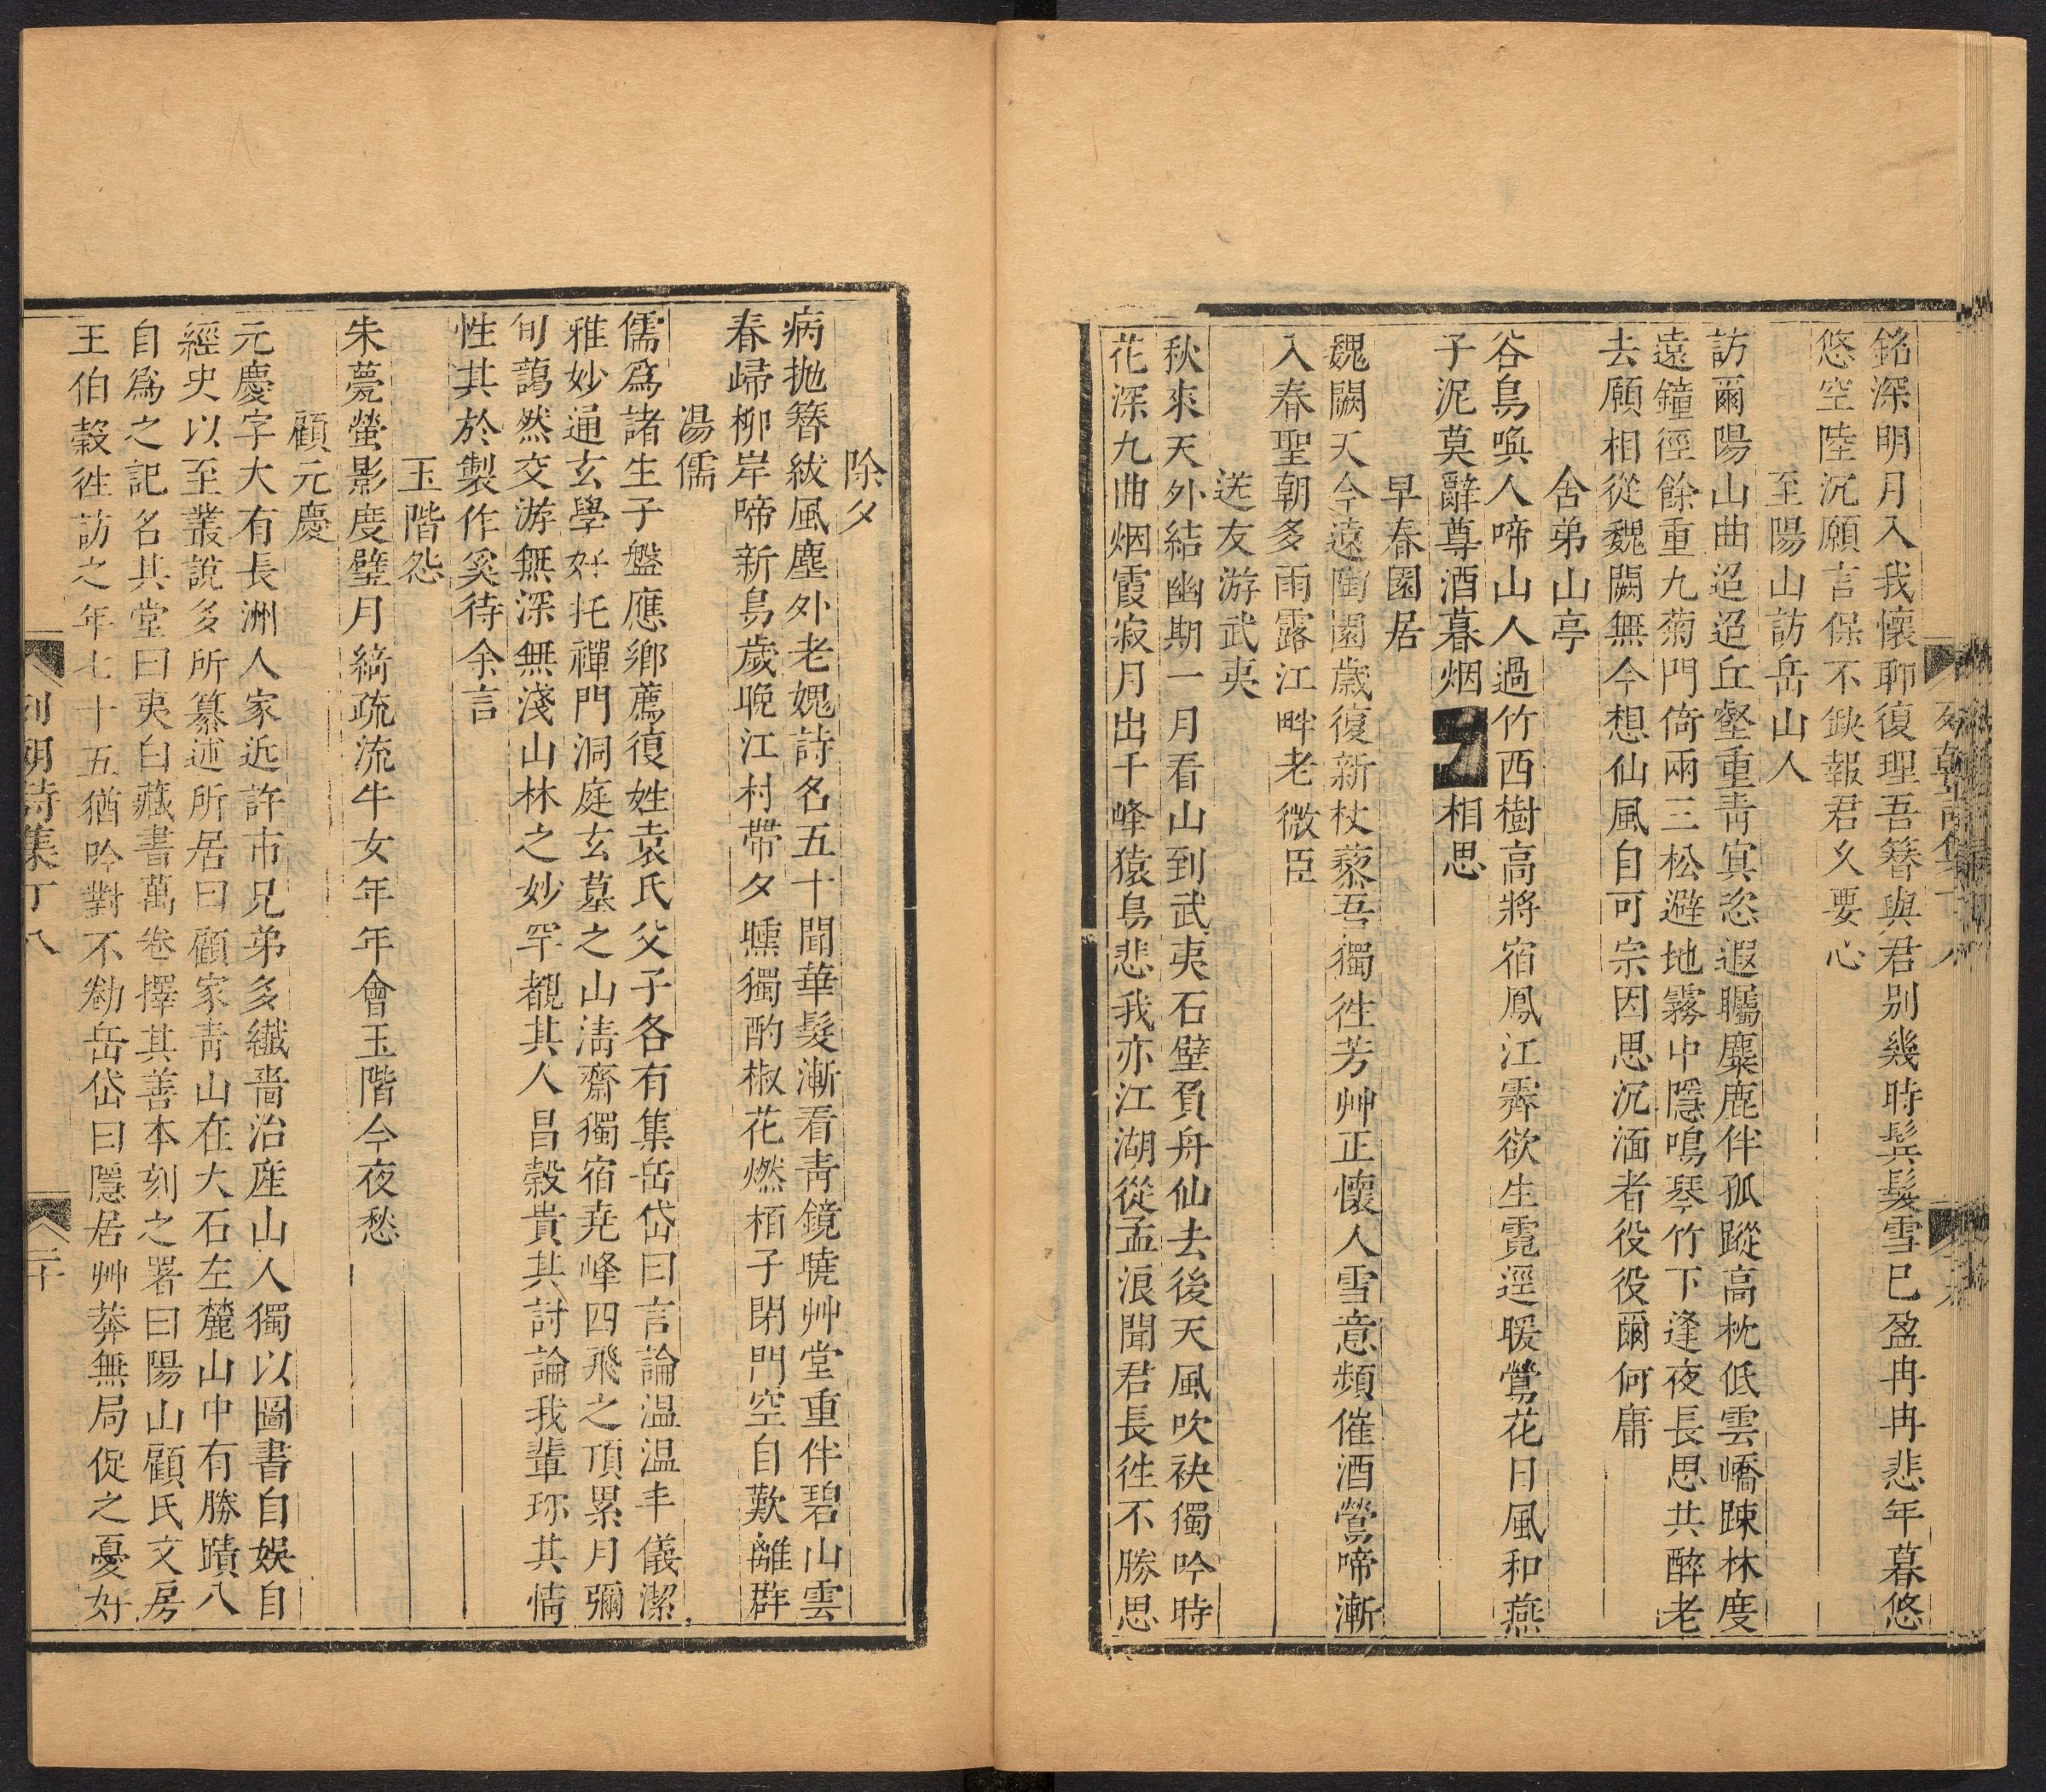 銘深明月入我懷聊復理吾簪與君別幾時髩髮雪已盈冉冉悲年暮悠
悠空陸沉願言保不缺報君久要心
至陽山訪岳山人
訪爾陽山曲迢迢丘壑重靑寘恣遐矚麋鹿伴孤蹤高枕低雲嶠踈林度
遠鐘徑餘重九菊門倚兩三松避地霧中隱鳴琴竹下逢夜長思共醉老
去願相從魏闕無今想仙風自可宗因思沉湎者役役爾何庸
舍弟山亭
谷鳥喚人啼山人過竹西樹高將宿鳳江霽欲生霓逕暖鶯花日風和燕
子泥莫辭尊酒暮烟相思
早春園居
魏闕天今遠陶園歲復新杖藜吾獨徃芳艸正懷人雪意頻催酒鶯啼漸
入春聖朝多雨露江畔老微臣
送友游武夷
秋來天外結幽期一月看山到武夷石壁負舟仙去後天風吹袂獨吟時
花深九曲烟霞寂月出千峰猿鳥悲我亦江湖從孟浪聞君長徃不勝思
除夕
病抛簪紱風塵外老媿詩名五十聞華髮漸看靑鏡曉艸堂重伴碧山雲
春歸柳岸啼新鳥歲晚江村帶夕曛獨酌椒花燃栢子閉門空自歎離群
湯儒
儒爲諸生子盤應鄉薦復姓袁氏父子各有集岳岱曰言論温温丰儀潔
雅妙通玄學好托禪門洞庭玄墓之山淸齋獨宿堯峰四飛之頂累月彌
旬藹然交游無深無淺山林之妙罕覩其人昌榖貴其討論我輩珎其情
性其於製作奚待余言
玉階怨
朱甍螢影度璧月綺疏流牛女年年會玉階今夜愁
顧元慶
元慶字大有長洲人家近許市兄弟多纖嗇治産山人獨以圖書自娛自
經史以至叢說多所纂述所居曰顧家靑山在大石左麓山中有勝蹟八
自爲之記名其堂曰夷白藏書萬卷擇其善本刻之署曰陽山顧氏文房
王伯榖徃訪之年七十五猶吟對不勌岳岱曰隱居艸莽無局促之憂好
列朝詩集丁八
二十